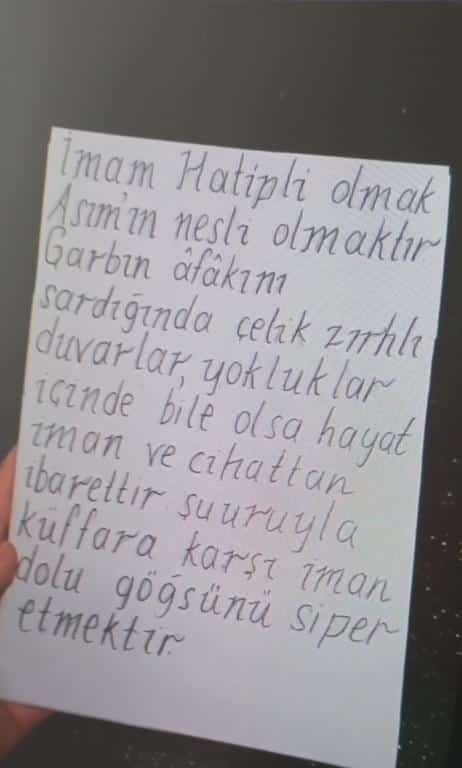 İmam Hatipli olmak
Asım'ın nesli olmaktır
Garbın âfâkını
sardığında çelik zırhlı
duvarlar, yokluklar
içinde bile olsa hayat
iman ve cihattan
ibarettir şuuruyla
küffara karşı iman
dolu göğsünü siper
etmektir.